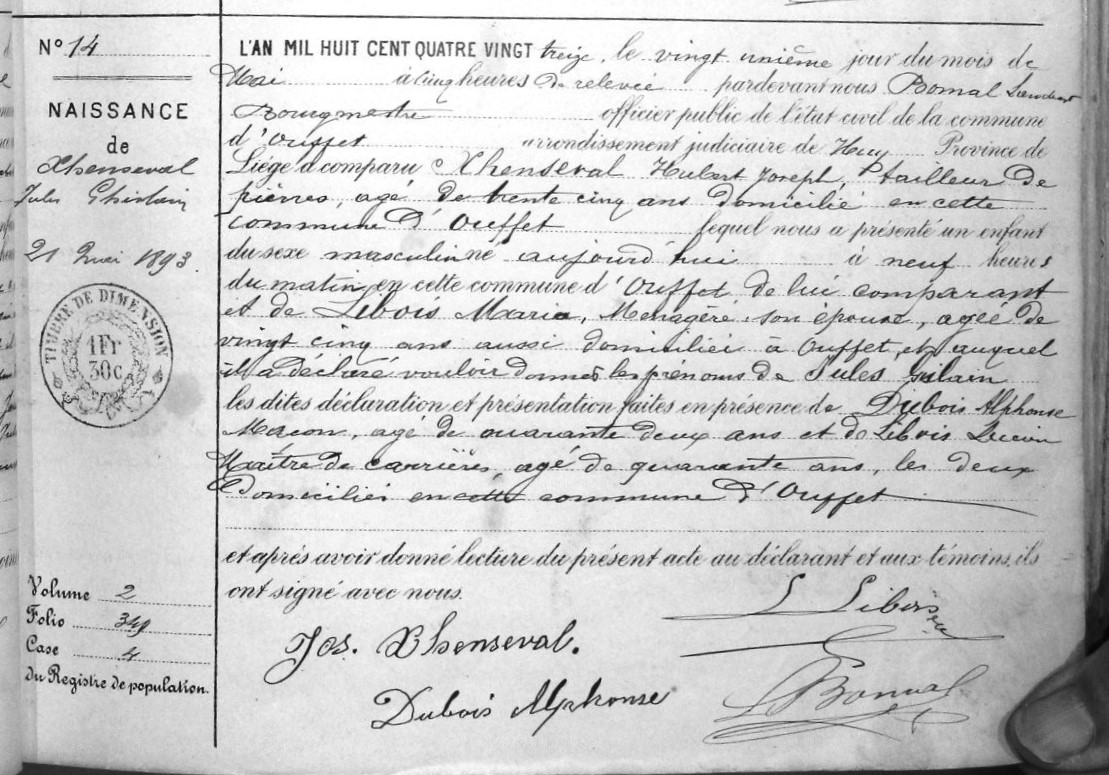 N° 14
NAISSANCE
de
Xhenseval
Jules Ghislain
21 Mai 1893.
TIMBRE DE DIMENSION
1Fr
30c
Volume 2
Folio 349
Case 4
du Registre de population.
L'AN MIL HUIT CENT QUATRE VINGT treize, le vingt unième jour du mois de
Mai à cinq heures de relevée pardevant nous Bomal
Bourgmestre officier public de l'état civil de la commune
d'Ouffet arrondissement judiciaire de Huy Province de
Liège a comparu Xhenseval Hubert Joseph, tailleur de
pierres, agé de trente cinq ans domicilié en cette
commune d'Ouffet lequel nous a présenté un enfant
du sexe masculin né aujourd'hui à neuf heures
du matin, en cette commune d'Ouffet de lui comparant
et de Libois Maria, Menagère son épouse, agée de
vingt cinq ans aussi domicilieé à Ouffet, et auquel
il a déclaré vouloir donner les prenoms de Jules Gilain
les dites déclaration et présentation faites en présence de Dubois Alphonse
Maçon, age de quarante deux ans et de Libois Lucien
Maître de carrières, agé de quarante ans, les deux
Domiciliés en cette commune d'Ouffet
et après avoir donné lecture du présent acte au déclarant et aux témoins, ils
ont signé avec nous.
L Libois
Jos. Xhenseval.
Dubois Alphonse
L Bomal